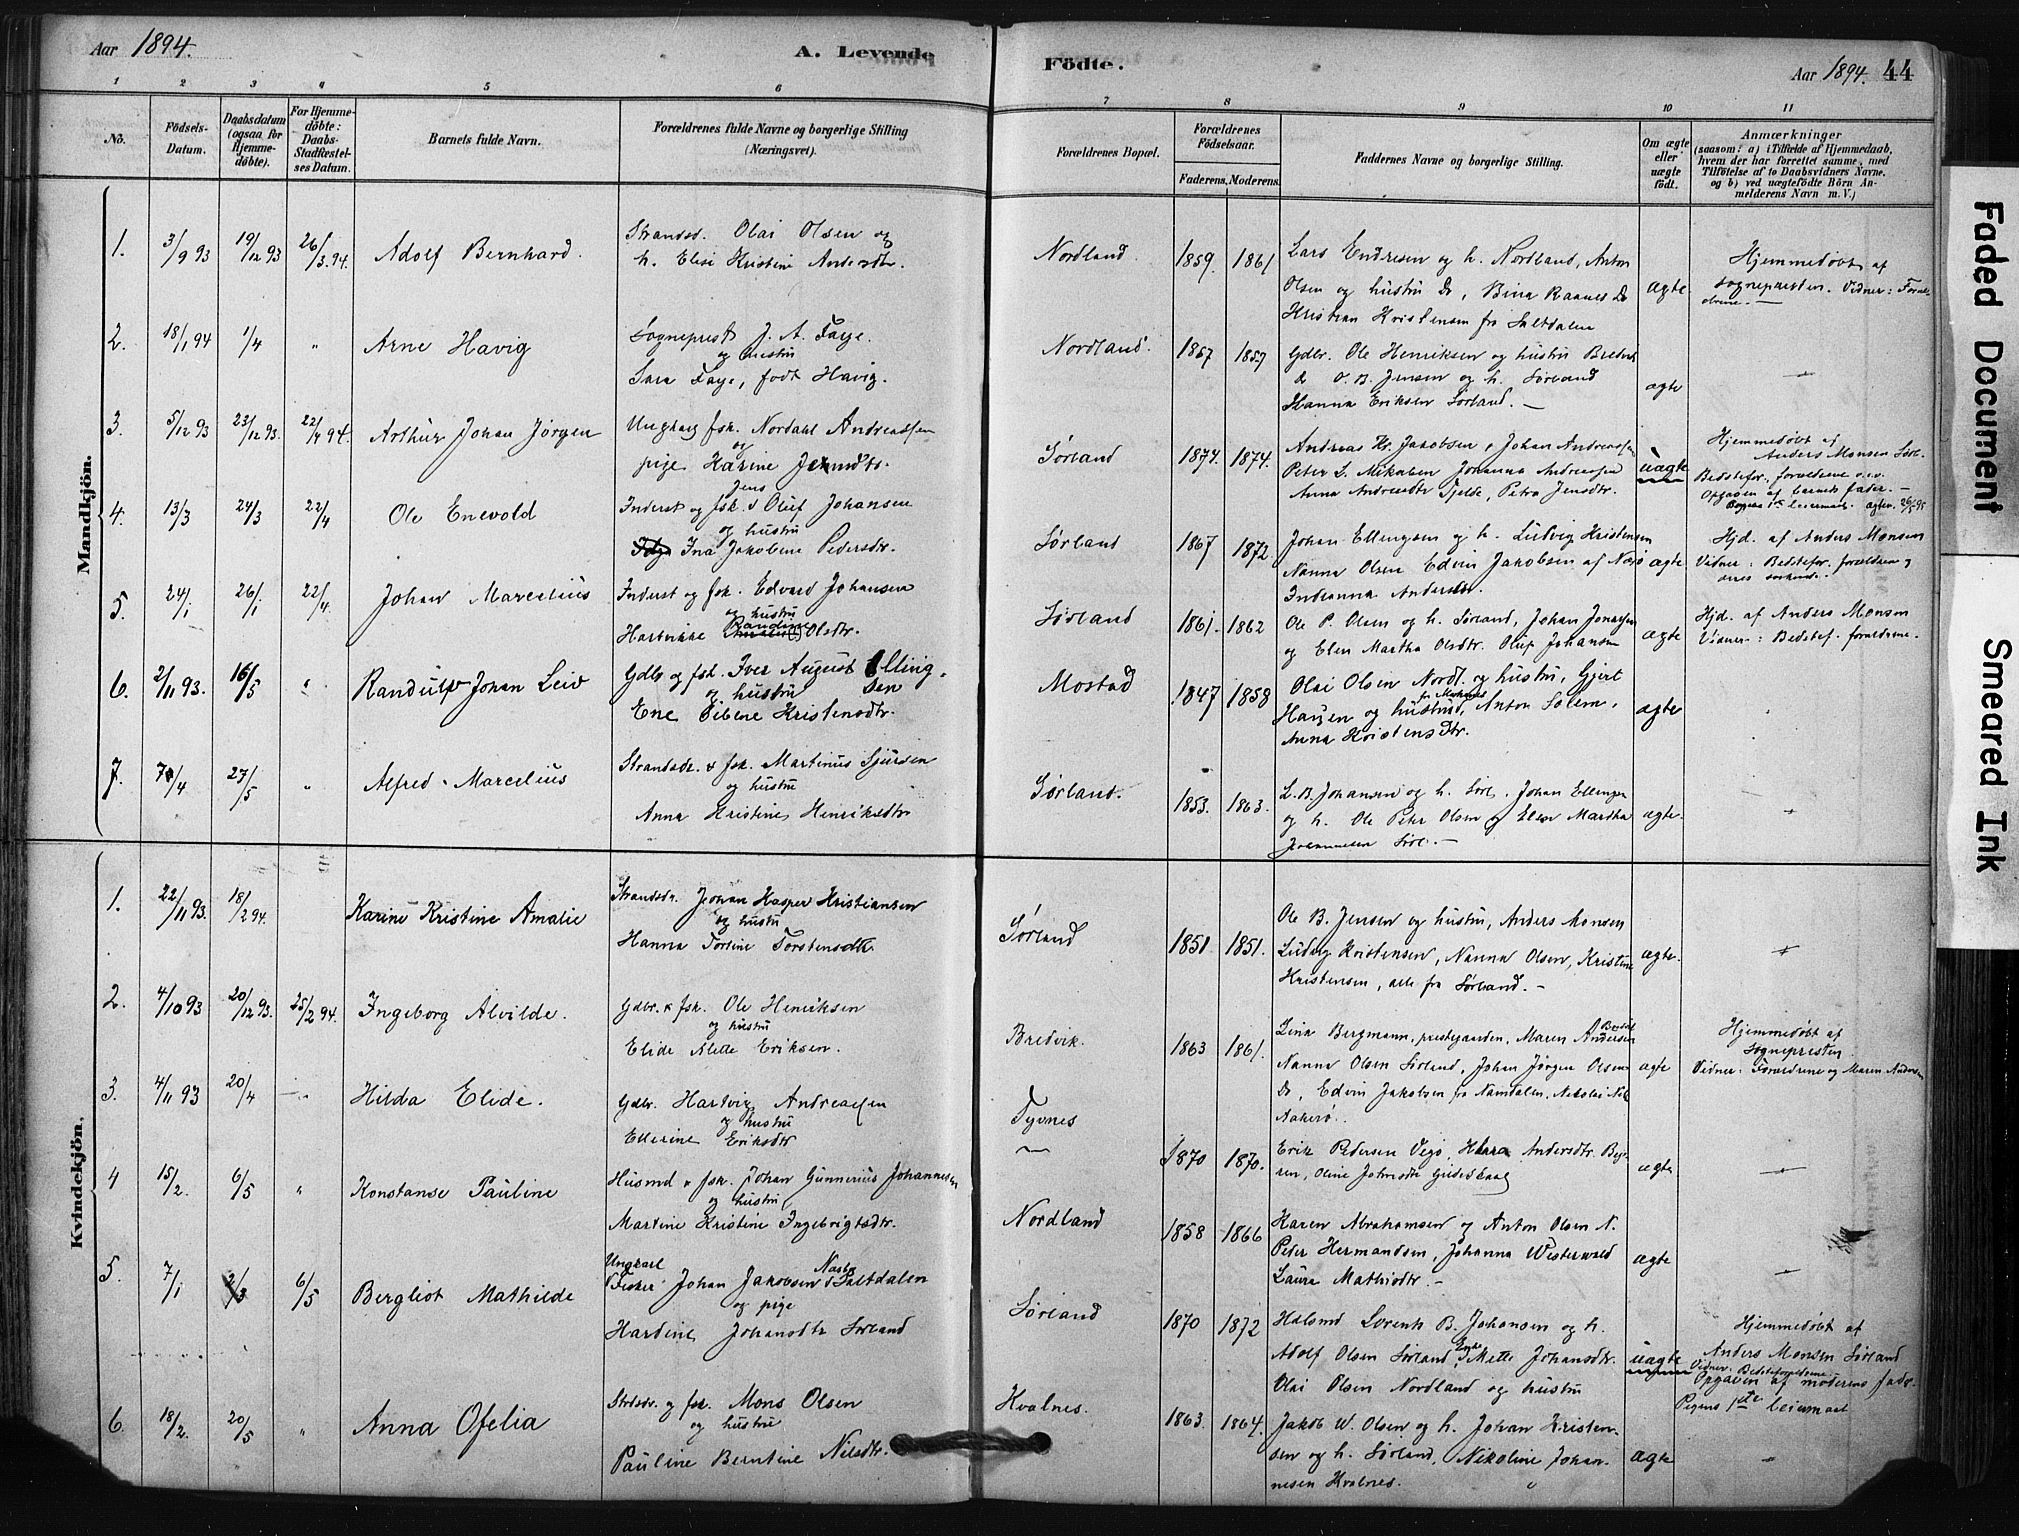 Aar 1894.
A. Levende
Födte.
Aar 1894. 44
1 2 3 4 5 6 7 8 9 10 11
No.
Födsels-Datum.
Daabsdatum (ogsaa for Hjemmedöbte).
For Hjemmedöbte: Daabs-Stadfæstelses Datum.
Barnets fulde Navn.
Forældrenes fulde Navne og borgerlige Stilling (Næringsvei).
Forældrenes Bopæl.
Forældrenes Födselsaar.
Faderens. Moderens.
Faddernes Navne og borgerlige Stilling.
Om ægte eller uægte födt.
Anmærkninger
(saasom: a) i Tilfælde af Hjemmedaab,
hvem der har forrettet samme, med
Tilföielse af to Daabsvidners Navne,
og b) ved uægtefödte Börn An-
melderens Navn m. V.)
Mandkjön.
1. 3/9 93 19/12 93 26/3 94. Adolf Bernhard.
Strandsd. Olai Olsen og
h. Elise Kristine Andersdtr.
Nordland. 1859. 1861
Lars Endresen og h. Nordland, Anton
Olsen og hustru Do, Bina Raanes Do
Kristian Kristensen fra Saltdalen
ægte.
Hjemmedøbt af
Sognepresten. Vidner: Foræl-
drene. —
2. 18/1 94 1/4 " Arne Havig
Sogneprest J. A. Faye.
og hustru
Sara Faye, født Havig.
Nordland. 1857 1857
Gdbr. Ole Henriksen og hustru Bredvik
O. B. Jensen og h. Sørland
Hanna Eriksen Sørland. —
ægte
3. 5/12 93 23/12 93. 22/4 94. Arthur Johan Jørgen
Ungkarl fsk. Nordahl Andreassen
og
pige Karine Jensdtr.
Sørland 1874. 1874.
Andreas Kr. Jakobsen, Johan Andreassen
Peter L. Mikalsen Johanna Andreasen
Anna Andreasdtr Tjelde, Petra Jensdtr.
uægte
Hjemmedøbt af
Anders Monsen Sørl.
Bedstefor. forældrene
Opgaven af barnets fader. —
4. 13/3 24/3 22/4 Ole Enevold
Jens
Inderst og fsk. Oluf Johansen
og hustru
Ina Jakobine Pedersdtr.
Sørland 1867 1872.
Johan Ellingsen og h. Ludvig Kristensen
Nanna Olsen Edvin Jakobsen af
Indianna Andersdtr
ægte
Hjd. af Anders Monsen
Vidner: Bedstefor. forældrene
5. 24/1 26/1 22/4. Johan Marcelius
Inderst og fsk. Edvard Johansen
og hustru
Hartvikke Randine Olsdtr.
Sørland 1861. 1862
Ole P. Olsen og h. Sørland, Johan Jonassen
og Elen Martha Olsdtr. Oluf Johansen
ægte
Hjd. af Anders Monsen
Vidner: Bedstef. forældrene.
6. 2/11 93. 16/5 " Randulf Johan Leiv
Gdbr og fsk. Iver August Elling-
og hustru sen
Ene Sibene Kristensdtr.
Mostad 1847 1858
Olai Olsen Nordl. og hustru, Gjert
Hansen og hustru, Anton Solem,
Anna Kristensdtr.
ægte
7. 7/4 27/5 " Alfred Marcelius
Strandsdr. & fsk. Martinus Sjursen
og hustru
Anna Kristine Henriksdtr
Sørland. 1853. 1863.
L. B. Johansen og h. Sørl. Johan Ellingsen
og h. Ole Peter Olsen og Elen Martha
Johannesen Sørl. —
ægte.
Kvindekjön.
1. 22/11 93. 18/2 94. Karine Kristine Amalie
Strandsdr. Johan Kasper Kristiansen
og hustru
Hanna Torline Torstensdtr
Sørland 1851 1851.
Ole B. Jensen og hustru, Anders Monsen
Ludvig Kristensen, Nanna Olsen, Kristine
Kristensen, alle fra Sørland. —
ægte.
2. 4/10 93 20/12 93. 25/2 94. Ingeborg Alvilde.
Gdbr. & fsk. Ole Henriksen
og hustru
Elide Alette Eriksen.
Bredvik. 1863 1861.
Lina Bergmann, prestegaarden, Maren Andersen
Nanna Olsen Sørland, Johan Jørgen Olsen
Do, Edvin Jakobsen fra Namdalen, Nikolai Nils
ægte
Hjemmedøbt af
Sognepresten.
Vidner: Forældrene og Maren Andersen
3. 4/11 93 20/4 Hilda Elide.
Gdbr. Hartvig Andreassen
og hustru
Ellerine Eriksdtr
Tyvnes 1870 1870.
Erik Pedersen Vegø, Klara Andersdtr.
Oline Johnsdtr Gildeskaal
ægte
4 15/2. 6/5 " Konstanse Pauline
Husmd & fsk. Johan Gunnerius Johannesen
og hustru
Martine Kristine Ingebrigtsdtr.
Nordland 1858 1866
Karen Abrahamsen og Anton Olsen N.
Peter Hermandsen, Johanna Westerwald
Laura Mathisdtr. —
ægte
5. 7/1 2/3 6/5 Bergliot Mathilde
Ungkarl
Fisker Johan Jakobsen Saltdalen
og pige
Hardine Johansdtr Sørland
Sørland 1870 1872
Husmd Lorents B. Johansen og h.
Adolf Olsen Sørland, Mette Johansdtr.
Olai Olsen Nordland og hustru
uægte
Hjemmedøbt af
Anders Monsen Sørland
Vidner: Bedsteforældrene
Opgaven af moderens fader.
Pigens 1ste leiermaal
6. 18/2. 20/5 " Anna Ofelia
Strdsdr. og fsk. Mons Olsen
og hustru
Pauline Berntine Nilsdtr.
Kvalnes. 1863. 1864.
Jakob W. Olsen og h. Johan Kristen-
sen og h. Sørland, Nikoline Johan-
nesen Kvalnes.
ægte
Faded Document
Smeared Ink